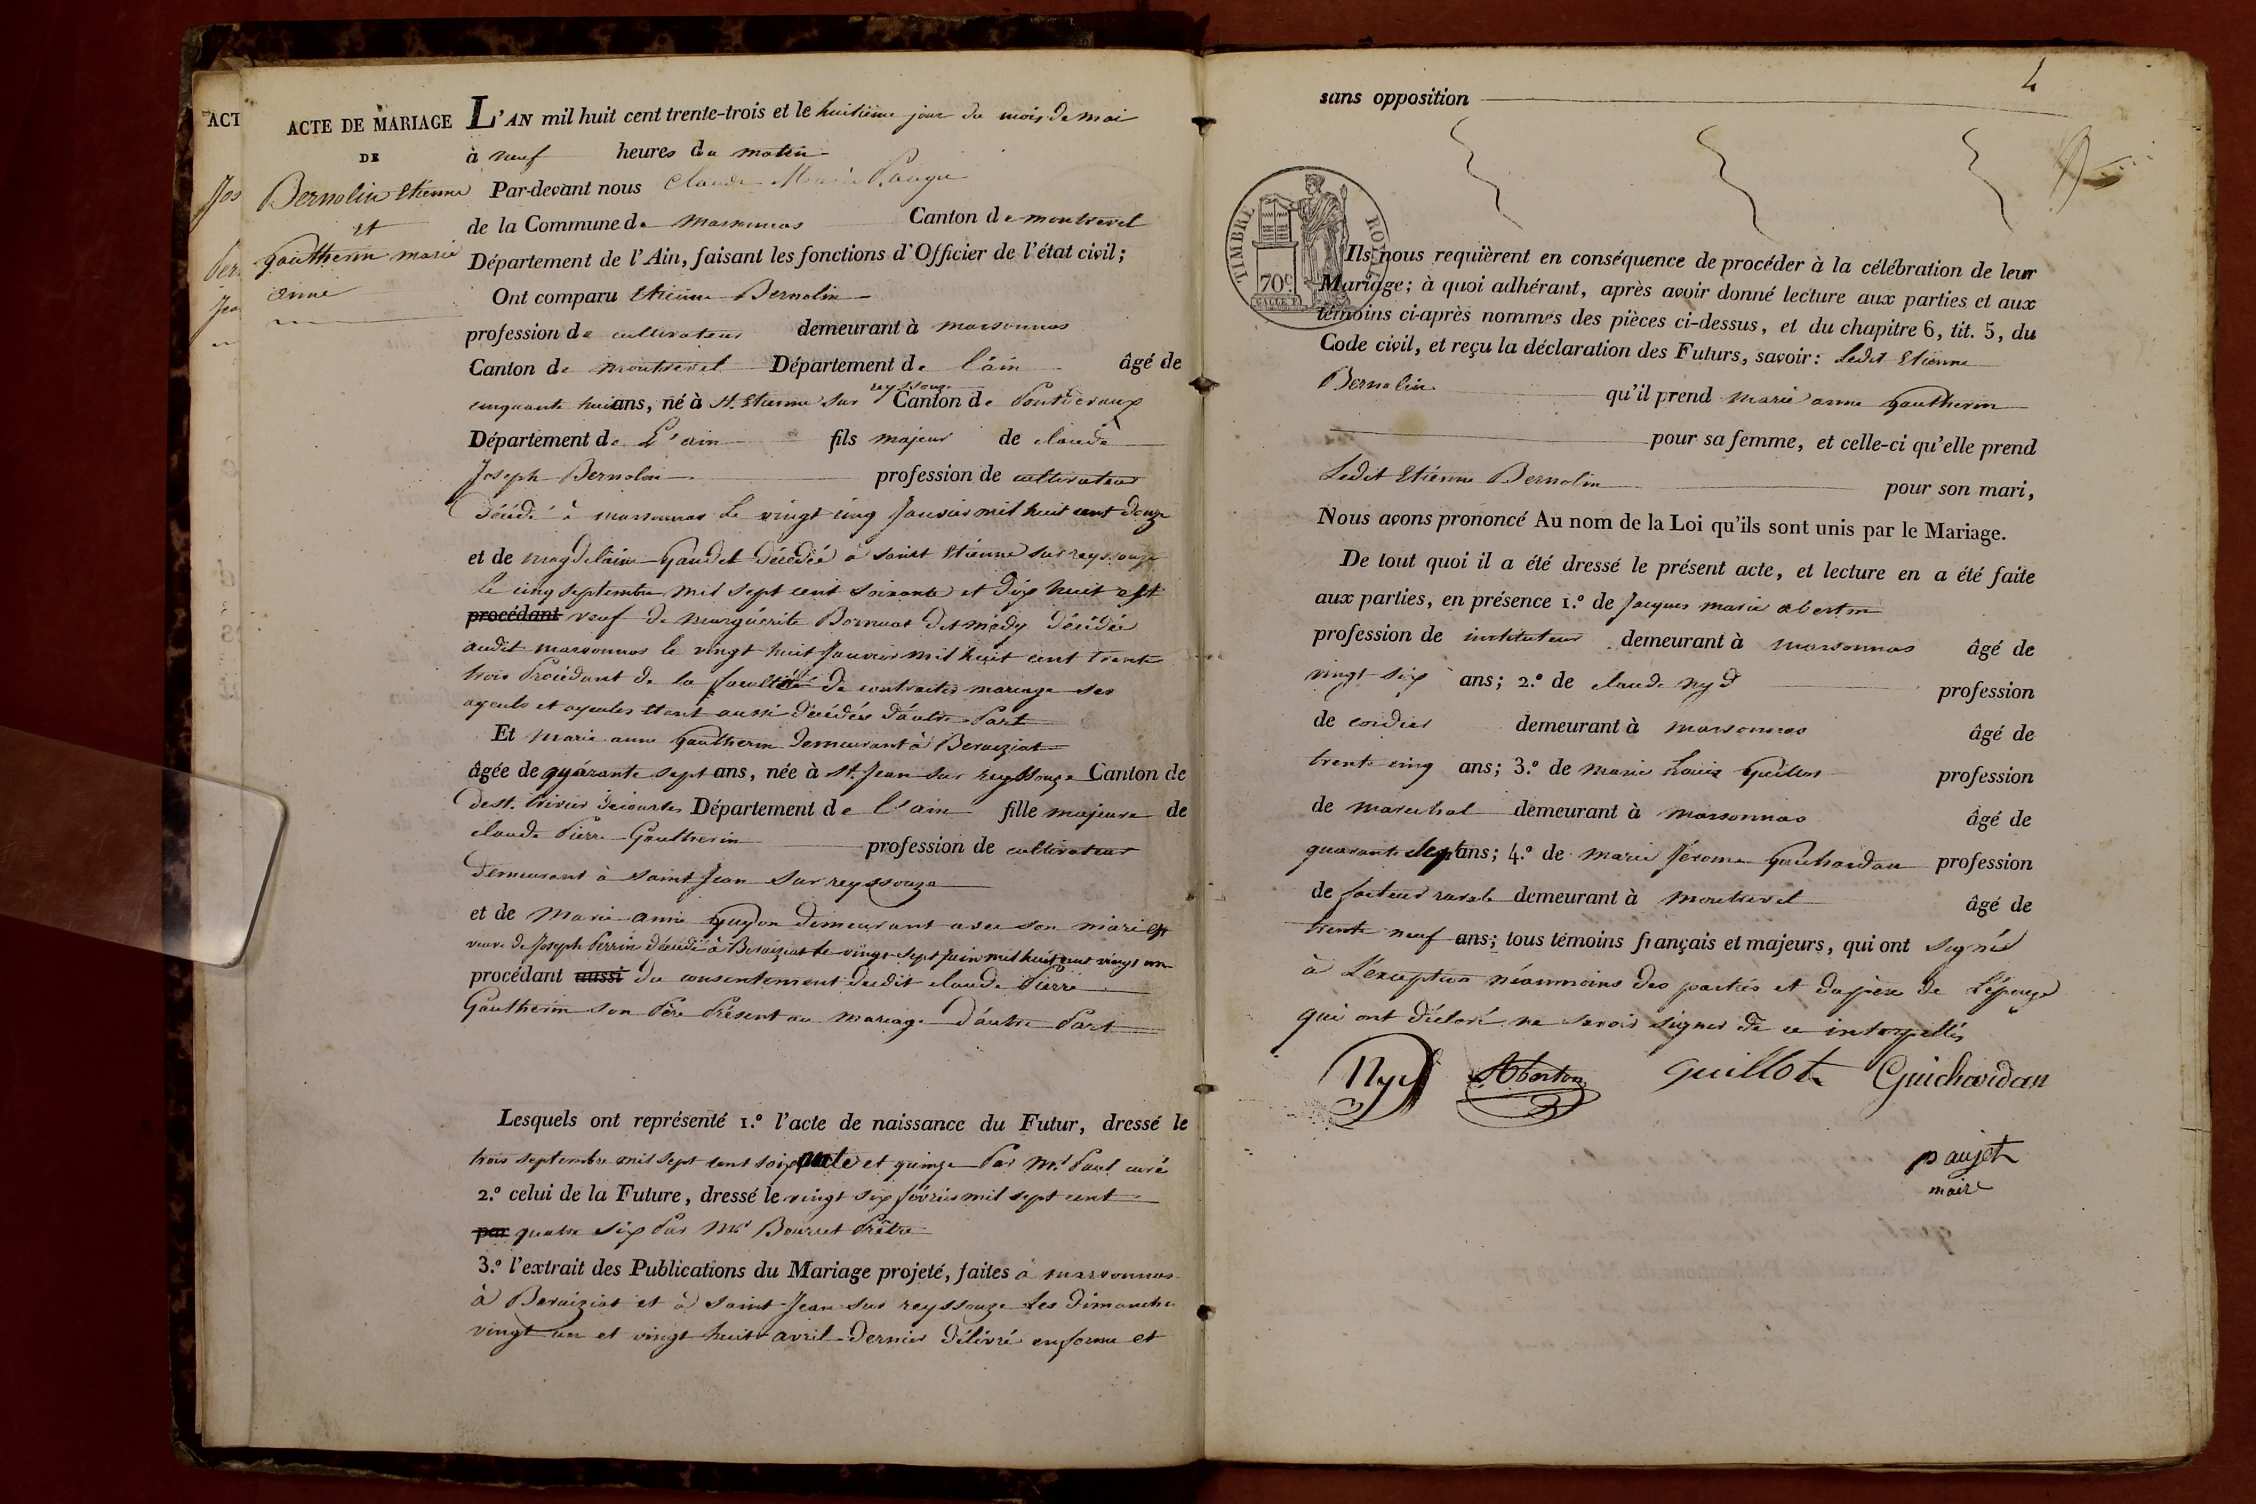 ACT
Jos
ACTE DE MARIAGE
DE
Bernolin Etienne
et
Gautherin marie
anne
L'AN mil huit cent trente-trois et le huitième jour du mois de mai
à neuf heures du matin
Par-devant nous Claude Marie Paujet
de la Commune de marsonnas Canton de montrevel
Département de l'Ain, faisant les fonctions d'Officier de l'état civil;
Ont comparu Etienne Bernolin
profession de cultivateur demeurant à marsonnas
Canton de montrevel Département de l'ain âgé de
reyssouze
cinquante huit ans, né à St. Etienne sur Canton de Pontdevaux
Département de L'ain fils majeur de claude
Joseph Bernolin profession de cultivateur
décédé à marsonnas le vingt cinq Janvier mil huit cent douze
et de magdelaine Gaudet décédée à saint Etienne sur reyssouze
le cinq septembre mil sept cent soixante et dix huit est
procédant veuf de marguérite Bornuat dit médy décédée
audit marsonnas le vingt huit Janvier mil huit cent trente
trois Procédant de la faculté de contracter mariage ses
ayeuls et ayeules étant aussi décédés d'autre Part
Et marie anne Gautherin demeurant à Beraiziat
âgée de quarante sept ans, née à St. Jean sur reyssouze Canton de
de st. trivier de courtes Département de l'ain fille majeure de
claude Pierre Gautherin profession de cultivateur
demeurant à saint Jean sur reyssouze
et de marie anne Guyon demeurant avec son mari est
veuve de Joseph Perrin décédé à Beraiziat le vingt sept juin mil huit cent vingt un
procédant aussi du consentement dudit claude Pierre
Gautherin son Père Présent au mariage d'autre Part
Lesquels ont représenté 1.º l'acte de naissance du Futur, dressé le
trois septembre mil sept cent soixante et quinze Par Mr. Paul curé
2.º celui de la Future, dressé le vingt six février mil sept cent
par quatre six Par Mr. Bourret Prêtre
3.º l'extrait des Publications du Mariage projeté, faites à marsonnas
à Beraiziat et à saint Jean sur reyssouze les dimanche
vingt un et vingt huit avril dernier délivré en forme et
4
sans opposition
TIMBRE ROYAL
70 c
Ils nous requièrent en conséquence de procéder à la célébration de leur
Mariage; à quoi adhérant, après avoir donné lecture aux parties et aux
témoins ci-après nommés des pièces ci-dessus, et du chapitre 6, tit. 5, du
Code civil, et reçu la déclaration des Futurs, savoir: Ledit Etienne
Bernolin qu'il prend marie anne Gautherin
pour sa femme, et celle-ci qu'elle prend
Ledit Etienne Bernolin pour son mari,
Nous avons prononcé Au nom de la Loi qu'ils sont unis par le Mariage.
De tout quoi il a été dressé le présent acte, et lecture en a été faite
aux parties, en présence 1.º de Jacques marie aberton
profession de instituteur demeurant à marsonnas âgé de
vingt six ans; 2.º de claude nyd profession
de cordier demeurant à marsonnas âgé de
trente cinq ans; 3.º de marie Louis Guillot profession
de marechal demeurant à marsonnas âgé de
quarante sept ans; 4.º de marie Jérome Guichardan profession
de facteur rurale demeurant à montrevel âgé de
trente neuf ans; tous témoins français et majeurs, qui ont signé
à l'exception néanmoins des parties et du père de l'épouze
qui ont déclaré ne savoir signer de ce interpellés
Nyd Aberton Guillot Guichardan
paujet
maire